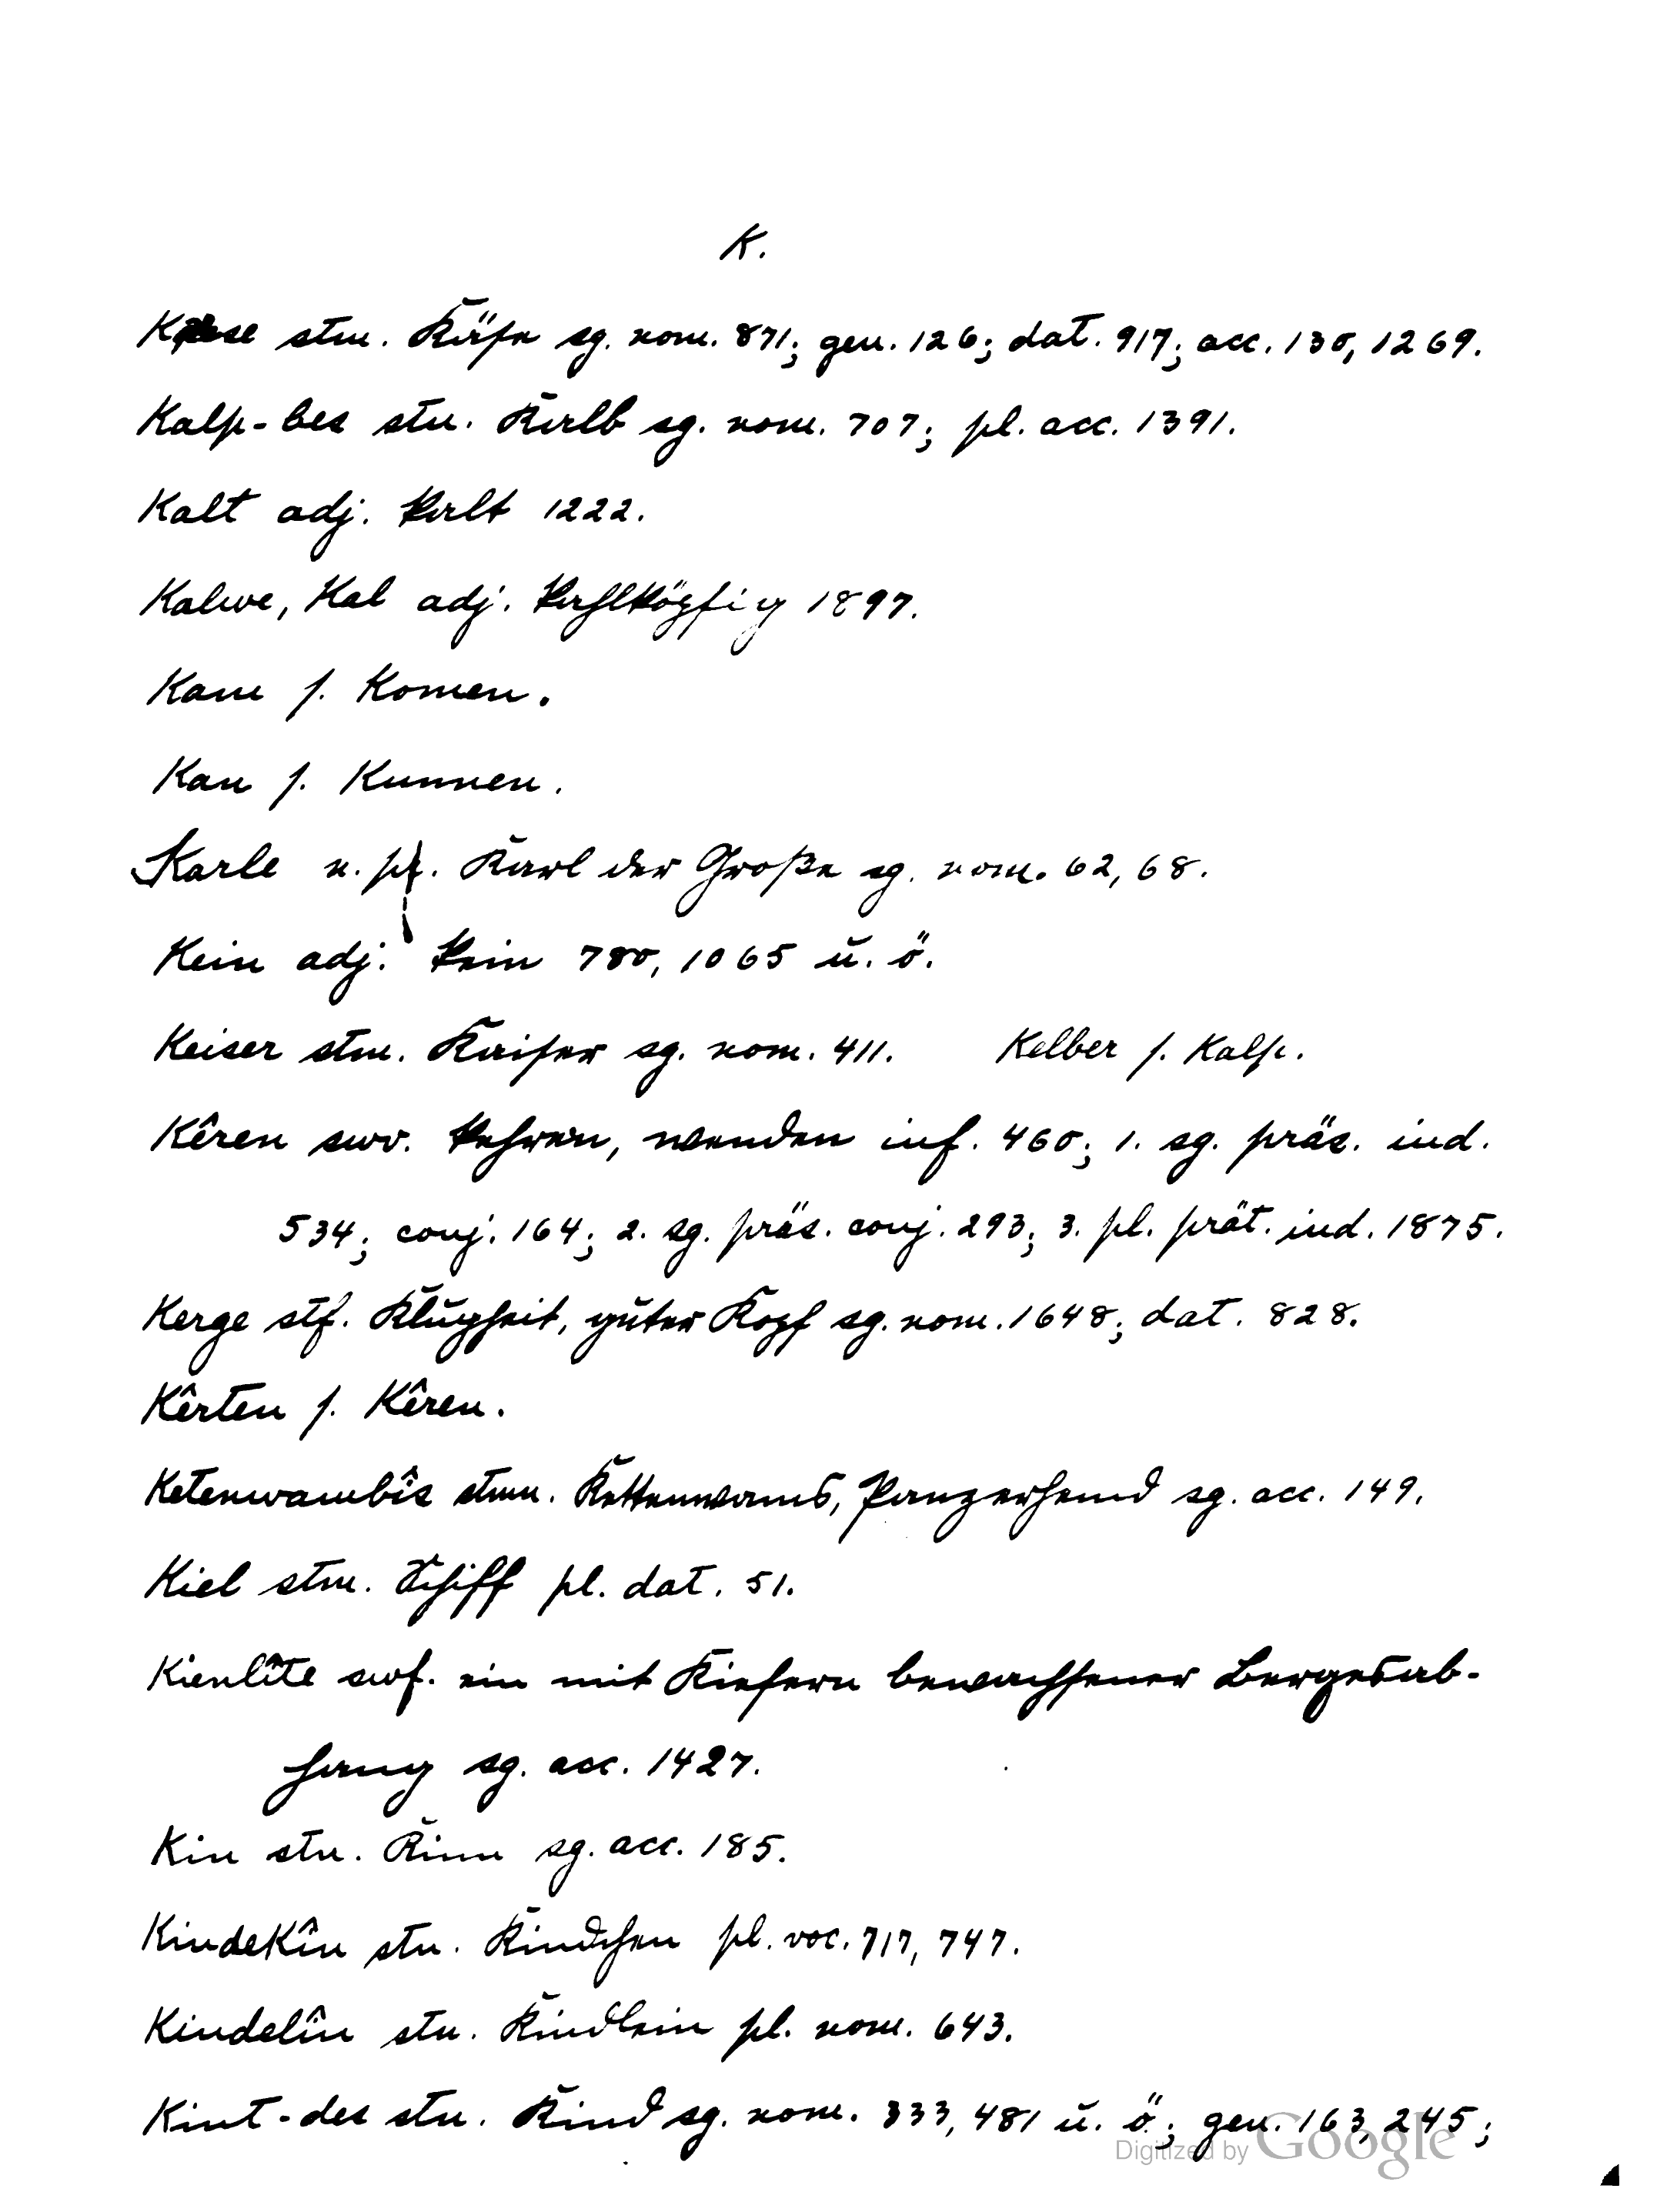 K.
Kæse stm. Käse sg. nom. 871; gen. 126; dat. 917; acc. 130, 1269.
Kalp-bes stn. Kalb sg. nom. 707; pl. acc. 1391.
Kalt adj. kalt 1222.
Kalwe, Kal adj. kahlköpfig 1897.
Kam s. Komen.
Kan s. Kunnen.
Karle n. pr. Karl der Große sg. nom. 62, 68.
Kein adj. kein 780, 1065 u. ö.
Keiser stm. Kaiser sg. nom. 411. Kelber s. Kalp.
Kêren swv. kehren, wenden inf. 460; 1. sg. präs. ind.
534; conj. 164; 2. sg. präs. conj. 293; 3. pl. prät. ind. 1875.
Kerge stf. Klugheit, guter Kopf sg. nom. 1648; dat. 828.
Kêrten s. Kêren.
Ketenwambîs stnn. Kettenwams, Panzerhemd sg. acc. 149.
Kiel stm. Schiff pl. dat. 51.
Kienlîte swf. ein mit Kiefern bewachsener Bergesab-
hang sg. acc. 1427.
Kin stn. Kinn sg. acc. 185.
Kindekîn stn. Kindchen pl. voc. 717, 747.
Kindelîn stn. Kindlein pl. nom. 643.
Kint-des stn. Kind sg. nom. 333, 481 u. ö.; gen. 163, 245;
Digitized by Google